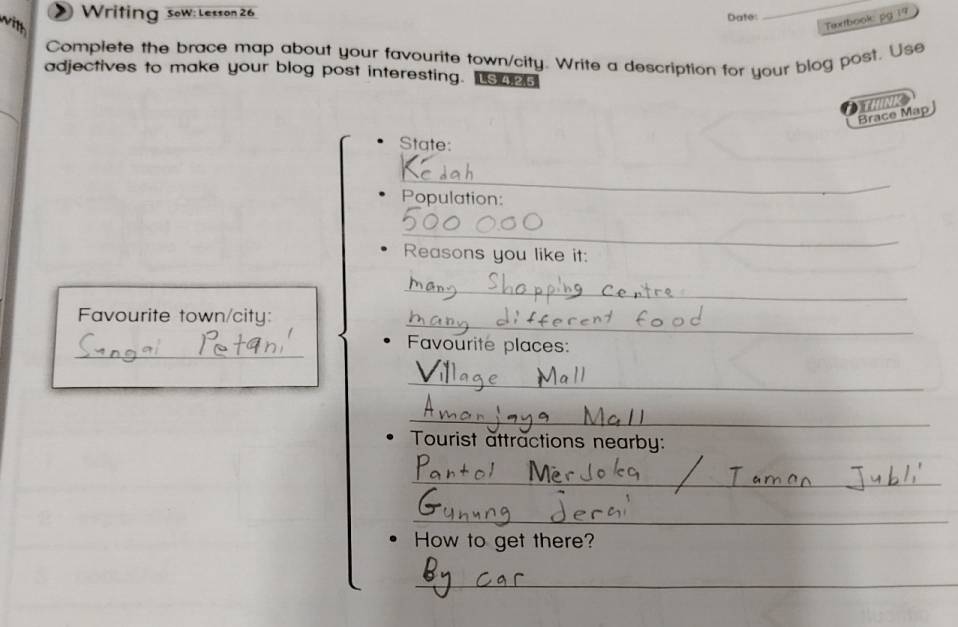 with
Writing SoW: Lesson 26
Date:
Textbook: pg 19
Complete the brace map about your favourite town/city. Write a description for your blog post. Use
adjectives to make your blog post interesting. LS 4.2.5
i THINK
Brace Map
• State:
Kedah
• Population:
500 000
• Reasons you like it:
many Shopping centre
many different food
Favourite town/city:
Sungai Petani
• Favourite places:
Village Mall
Amanjaya Mall
• Tourist attractions nearby:
Pantol Merdoka / Taman Jubli
Gunung Jerai
• How to get there?
By car